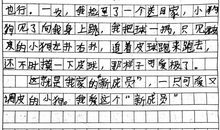 也行。一次，我抱了一个送回家，小狗
狗见了向我身上跳，我把球一抛，只见
皮的小狗左扑右扑，追着皮球跑来跑去，
还不时摸一下皮球，那样子可爱极了。
这就是我家的“新成员”，一只可爱又
调皮的小狗。我爱这个“新成员”